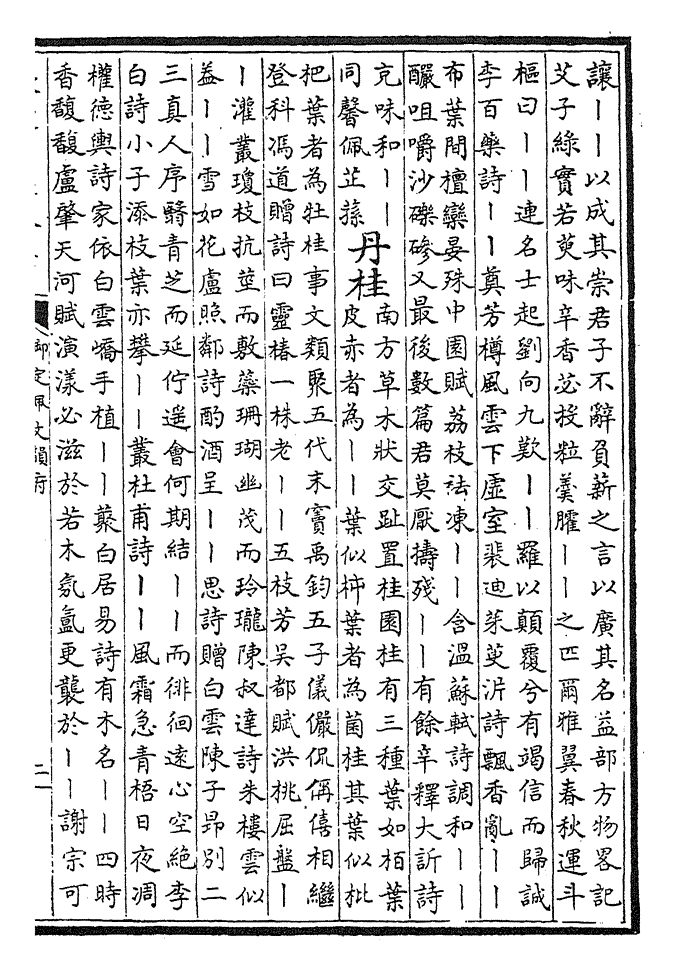 讓丨丨以成其崇君子不辭負薪之言以廣其名益部方物畧記
艾子綠實若萸味辛香苾投粒羹臛丨丨之匹爾雅翼春秋運斗
樞曰丨丨連名士起劉向九歎丨丨羅以顛覆兮有竭信而歸誠
李百藥詩丨丨奠芳樽風雲下虛室裴迪茱萸沜詩飄香亂丨丨
布葉間檀欒晏殊中園賦荔枝袪凍丨丨含溫蘇軾詩調和丨丨
釅咀嚼沙礫磣又最後數篇君莫厭擣殘丨丨有餘辛釋大訢詩
克味和丨丨
同馨佩芷蓀
丹桂
南方草木狀交趾置桂園桂有三種葉如栢葉
皮赤者為丨丨葉似柿葉者為菌桂其葉似枇
杷葉者為牡桂事文類聚五代末竇禹鈞五子儀儼侃偁僖相繼
登科馮道贈詩曰靈椿一株老丨丨五枝芳吳都賦洪桃屈盤丨
丨灌叢瓊枝抗莖而敷蘂珊瑚幽茂而玲瓏陳叔達詩朱樓雲似
葢丨丨雪如花盧照鄰詩酌酒呈丨丨思詩贈白雲陳子昻別二
三真人序翳青芝而延佇遥會何期結丨丨而徘徊遠心空絶李
白詩小子添枝葉亦攀丨丨叢杜甫詩丨丨風霜急青梧日夜凋
權德輿詩家依白雲嶠手植丨丨蘂白居易詩有木名丨丨四時
香馥馥盧肇天河賦演漾必滋於若木氛氲更襲於丨丨謝宗可
御定佩文韻府